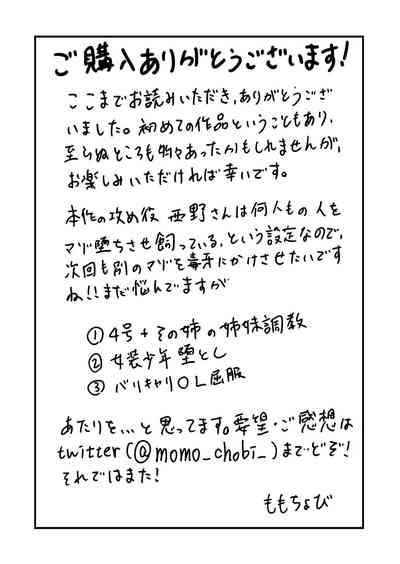 ご購入ありがとうございます!
ここまでお読みいただき、ありがとうござ
いました。初めての作品ということもあり、
至らぬところも多々あったかもしれませんが、
お楽しみいただければ幸いです。
本作の攻め役 西野さんは何人もの人を
マゾ堕ちさせ飼っている、という設定なので、
次回も別のマゾを毒牙にかけさせたいです
ね!!まだ悩んでますが
① 4号+その姉の姉妹調教
② 女装少年堕とし
③ バリキャリOL屈服
あたりを...と思ってます。要望・ご感想は
twitter(@momo_chobi_)までどぞ!
それではまた!
ももちょび